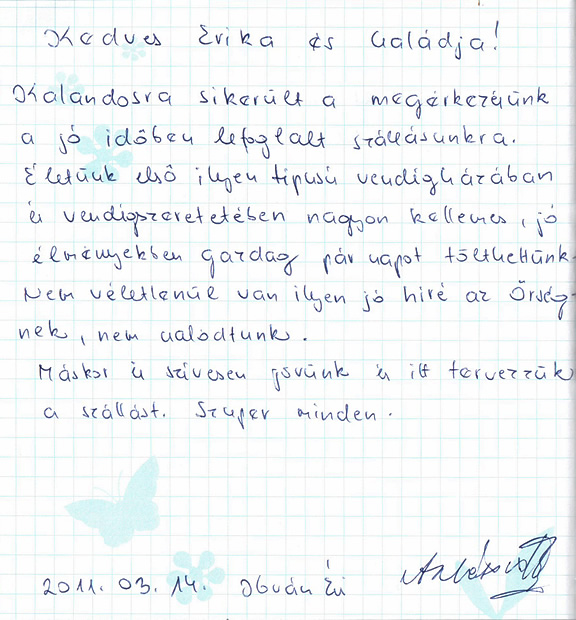 Kedves Erika és családja!
Kalandosra sikerült a megérkezésünk
a jó időben lefoglalt szállásunkra.
Életünk első ilyen tipusú vendégházában
és vendégszeretetében nagyon kellemes, jó
élményekben gazdag pár napot tölthettünk.
Nem véletlenül van ilyen jó hiré az Őrség-
nek, nem csalódtunk.
Máskor is szívesen jövünk és itt tervezzük
a szállást. Szuper minden.
2011. 03. 14.